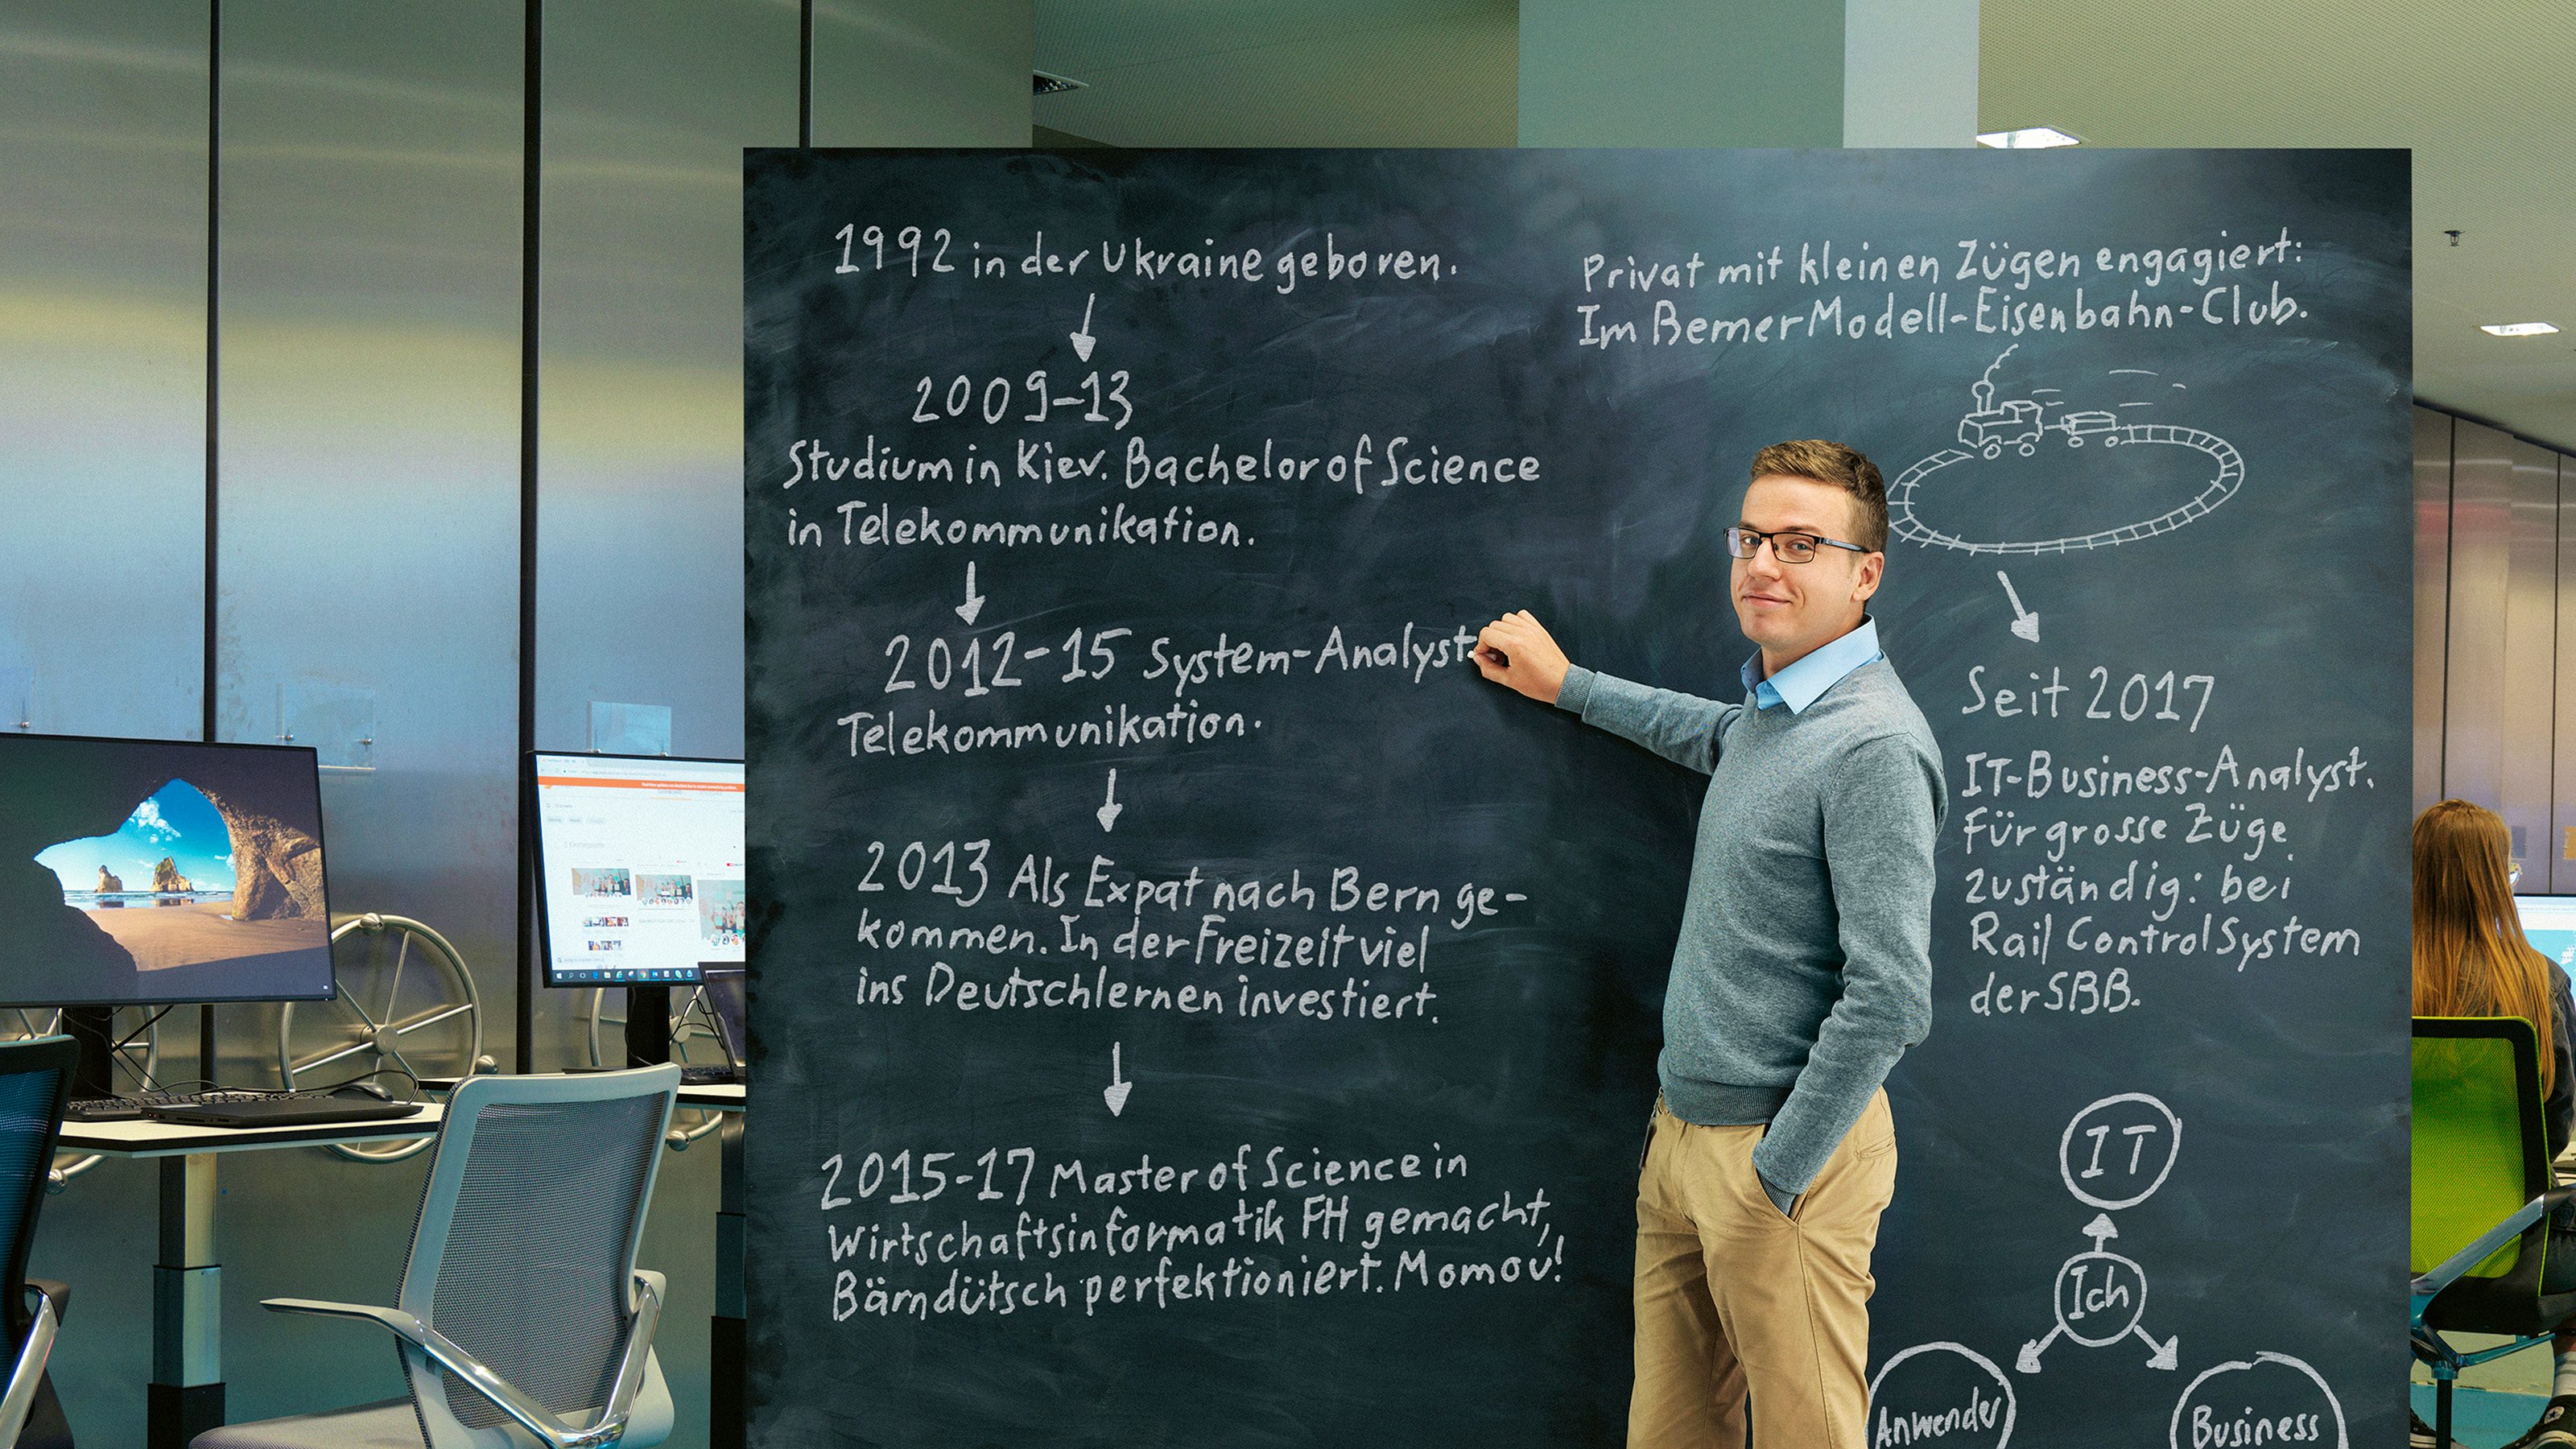 1992 in der Ukraine geboren.
2009-13
Studium in Kiev. Bachelor of Science
in Telekommunikation.
2012-15 System-Analyst.
Telekommunikation.
2013 Als Expat nach Bern ge-
kommen. In der Freizeit viel
ins Deutschlernen investiert.
2015-17 Master of Science in
Wirtschaftsinformatik FH gemacht,
Bärndütsch perfektioniert. Momou!
Privat mit kleinen Zügen engagiert:
Im Berner Modell-Eisenbahn-Club.
Seit 2017
IT-Business-Analyst.
Für grosse Züge
zuständig: bei
Rail Control System
der SBB.
IT
Ich
Anwender
Business